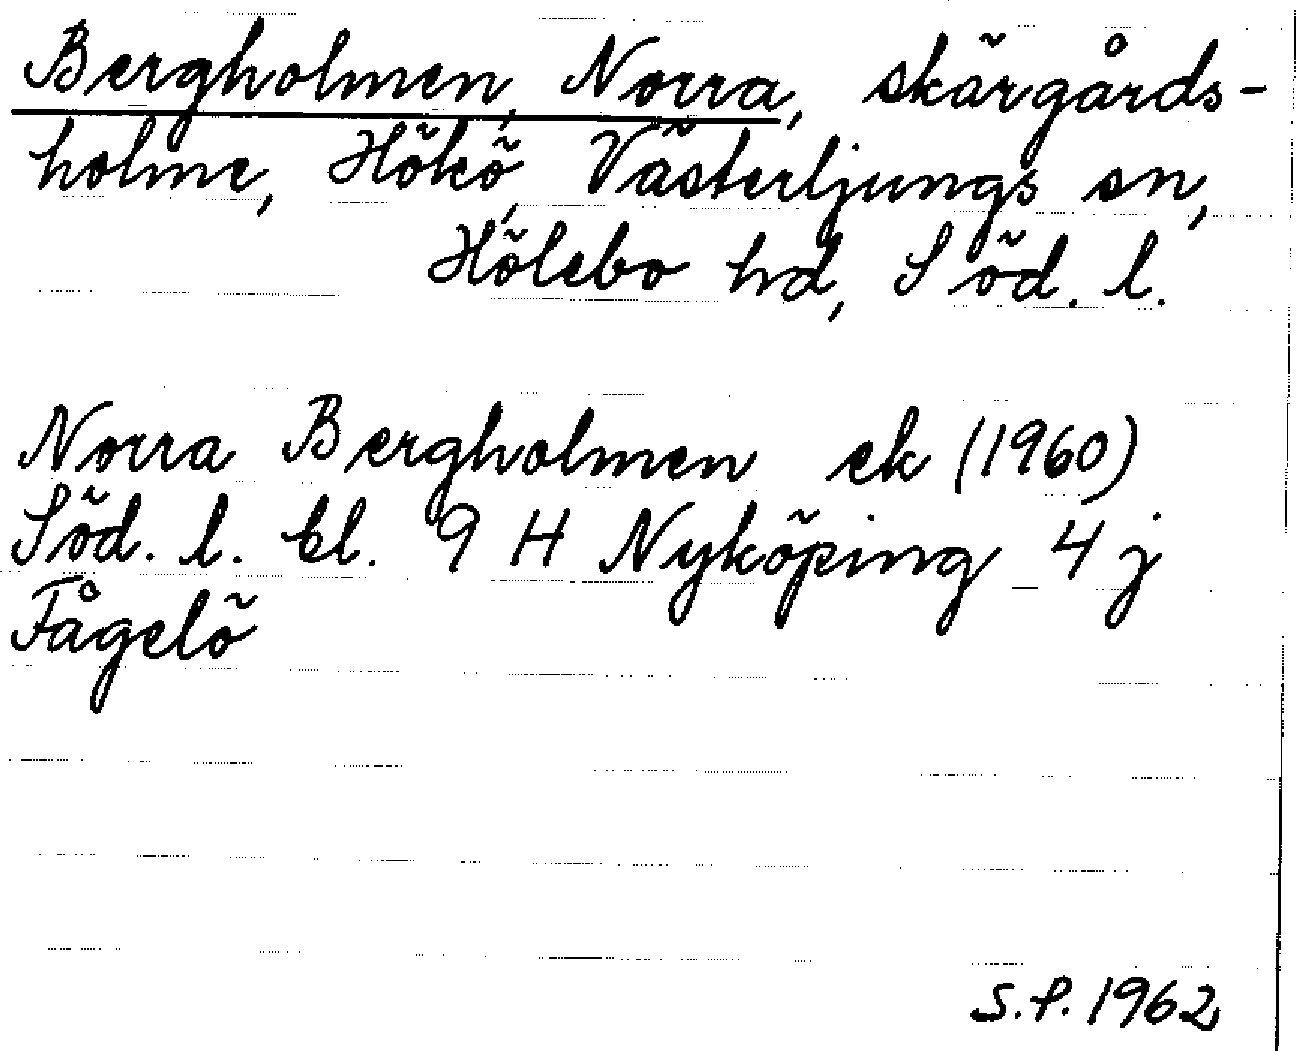 Bergholmen, Norra, skärgårds-
holme, Hökö, Västerljungs sn,
Hölebo hd, Söd. l.
Norra Bergholmen ek (1960)
Söd. l. bl. 9 H Nyköping 4 j
Fågelö
S.P. 1962